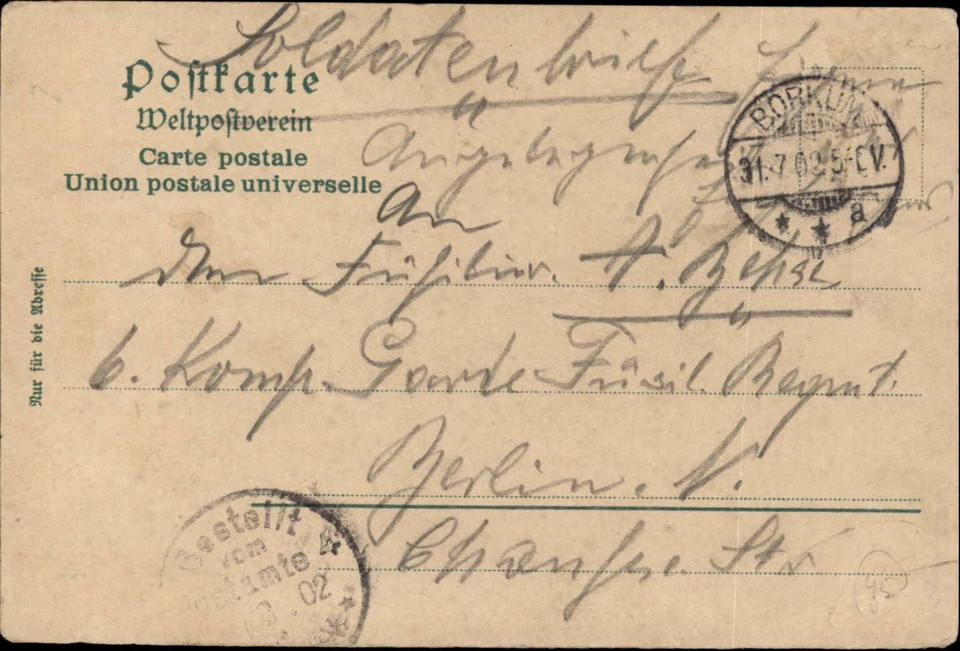 Soldatenbrief
Postkarte
Weltpostverein
Carte postale
Union postale universelle
BORKUM
31.7.02.5-6V.
* * a
An
den Füsilier. A.
6. Komp. Garde Füsil. Regmt.
Berlin. N.
Chaussee Str
Nur für die Adresse
Bestellt
vom
Postamte 4
02
75